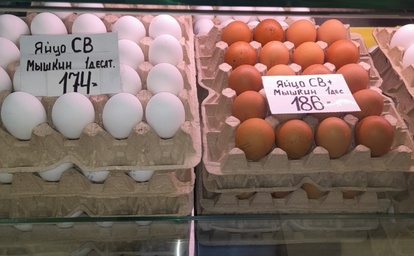 Яйцо СВ
Мышкин 1десят.
174-
Яйцо СВ
Мышкин 1дес
186-